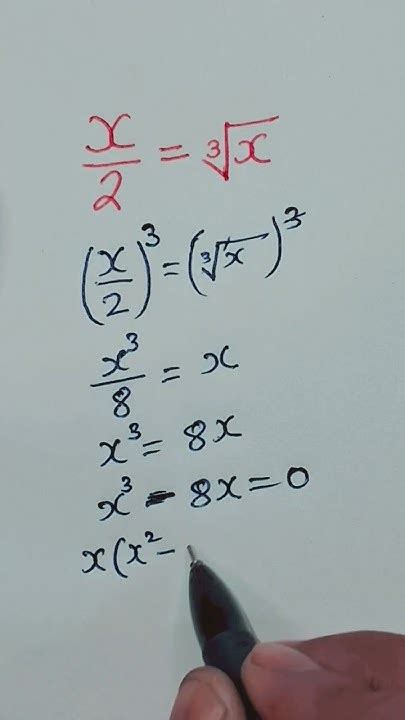 x/2 = ∛x
(x/2)³ = (∛x)³
x³/8 = x
x³ = 8x
x³ - 8x = 0
x(x² -